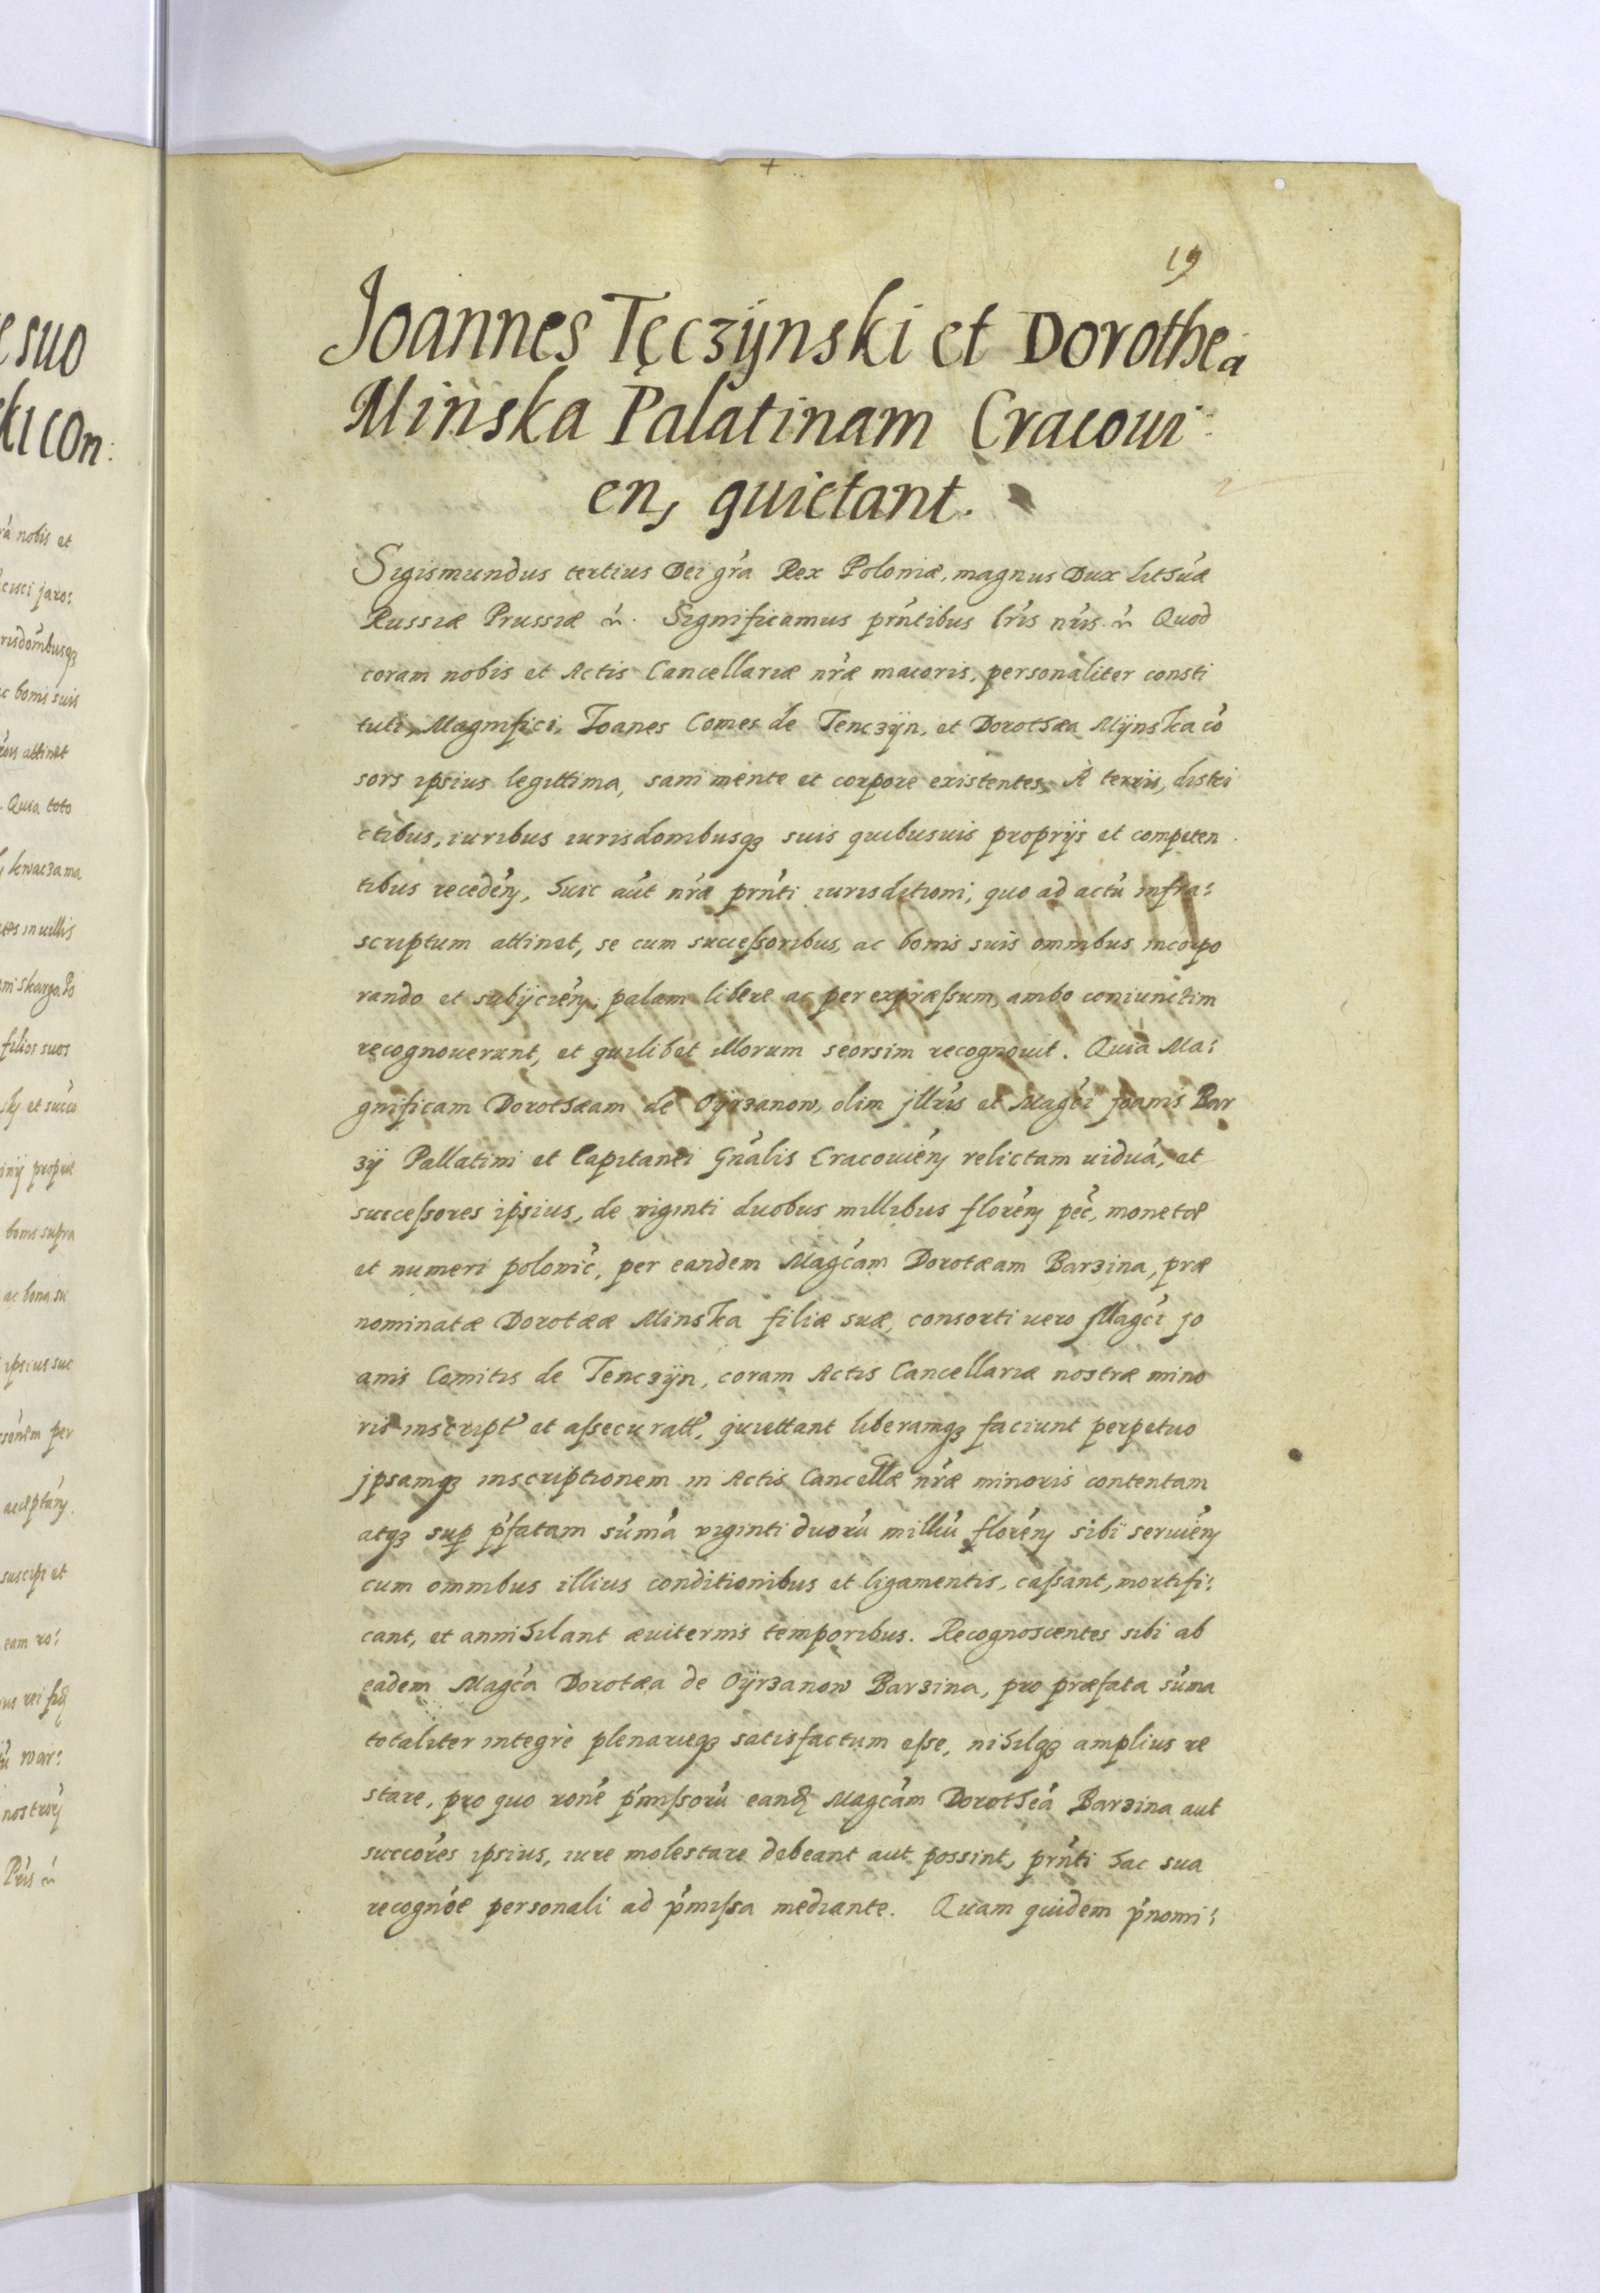 19
Joannes Tęczÿnski et Dorothea
Minska Palatinam Cracoui
en, quietant.
Sigismundus tertius Dei gra Rex Poloniæ, magnus Dux Lithuæ
Russiæ Prussiæ &. Significamus prntibus lris nris & Quod
coram nobis et Actis Cancellariæ nræ maioris, personaliter consti
tuti, Magnifici, Joanes Comes de Tenczÿn, et Dorothæa Mÿnska co
sors ipsius legittima, sani mente et corpore existentes, A terris, distri
ctibus, iuribus iurisdombusqȝ suis quibusuis proprijs et competen
tibus receden, huic aut nræ prnti iurisditioni, quo ad actu infra:
scriptum attinet, se cum successoribus, ac bonis suis omnibus incorpo
rando et subijcien, palam libere ac per expræssum, ambo coniunctim
recognouerunt, et quilibet illorum seorsim recognouit. Quia Ma:
gnificam Dorothæam de Oÿrzanow, olim jllris et Magci joanis Bar
zÿ Pallatini et Capitanei Gnalis Cracouien relictam uidua, et
successores ipsius, de viginti duobus millibus floren pec, monetæ
et numeri polonic, per eandem Magcam Dorotæam Barzina, præ
nominatæ Dorotææ Minska filiæ suæ, consorti uero Magci jo
anis Comitis de Tenczÿn, coram Actis Cancellariæ nostræ mino
ris inscript et assecuratt, quiettant liberamqȝ faciunt perpetuo
jpsamqȝ inscriptionem in Actis Cancellæ nræ minoris contentam
atqȝ sup pfatam suma viginti duoru milliu floren sibi seruien
cum omnibus illius conditionibus et ligamentis, cassant, mortifi:
cant, et annihilant æuiternis temporibus. Recognoscentes sibi ab
eadem Magca Dorotæa de Oÿrzanow Barzina, pro præfata suma
totaliter integrè plenarieqȝ satisfactum esse, nihilqȝ amplius re
stare, pro quo rone pmissoru eand Magcam Dorothea Barzina aut
succores ipsius, iure molestare debeant aut possint, prnti hac sua
recognoe personali ad pmissa mediante. Quam quidem pnomi: